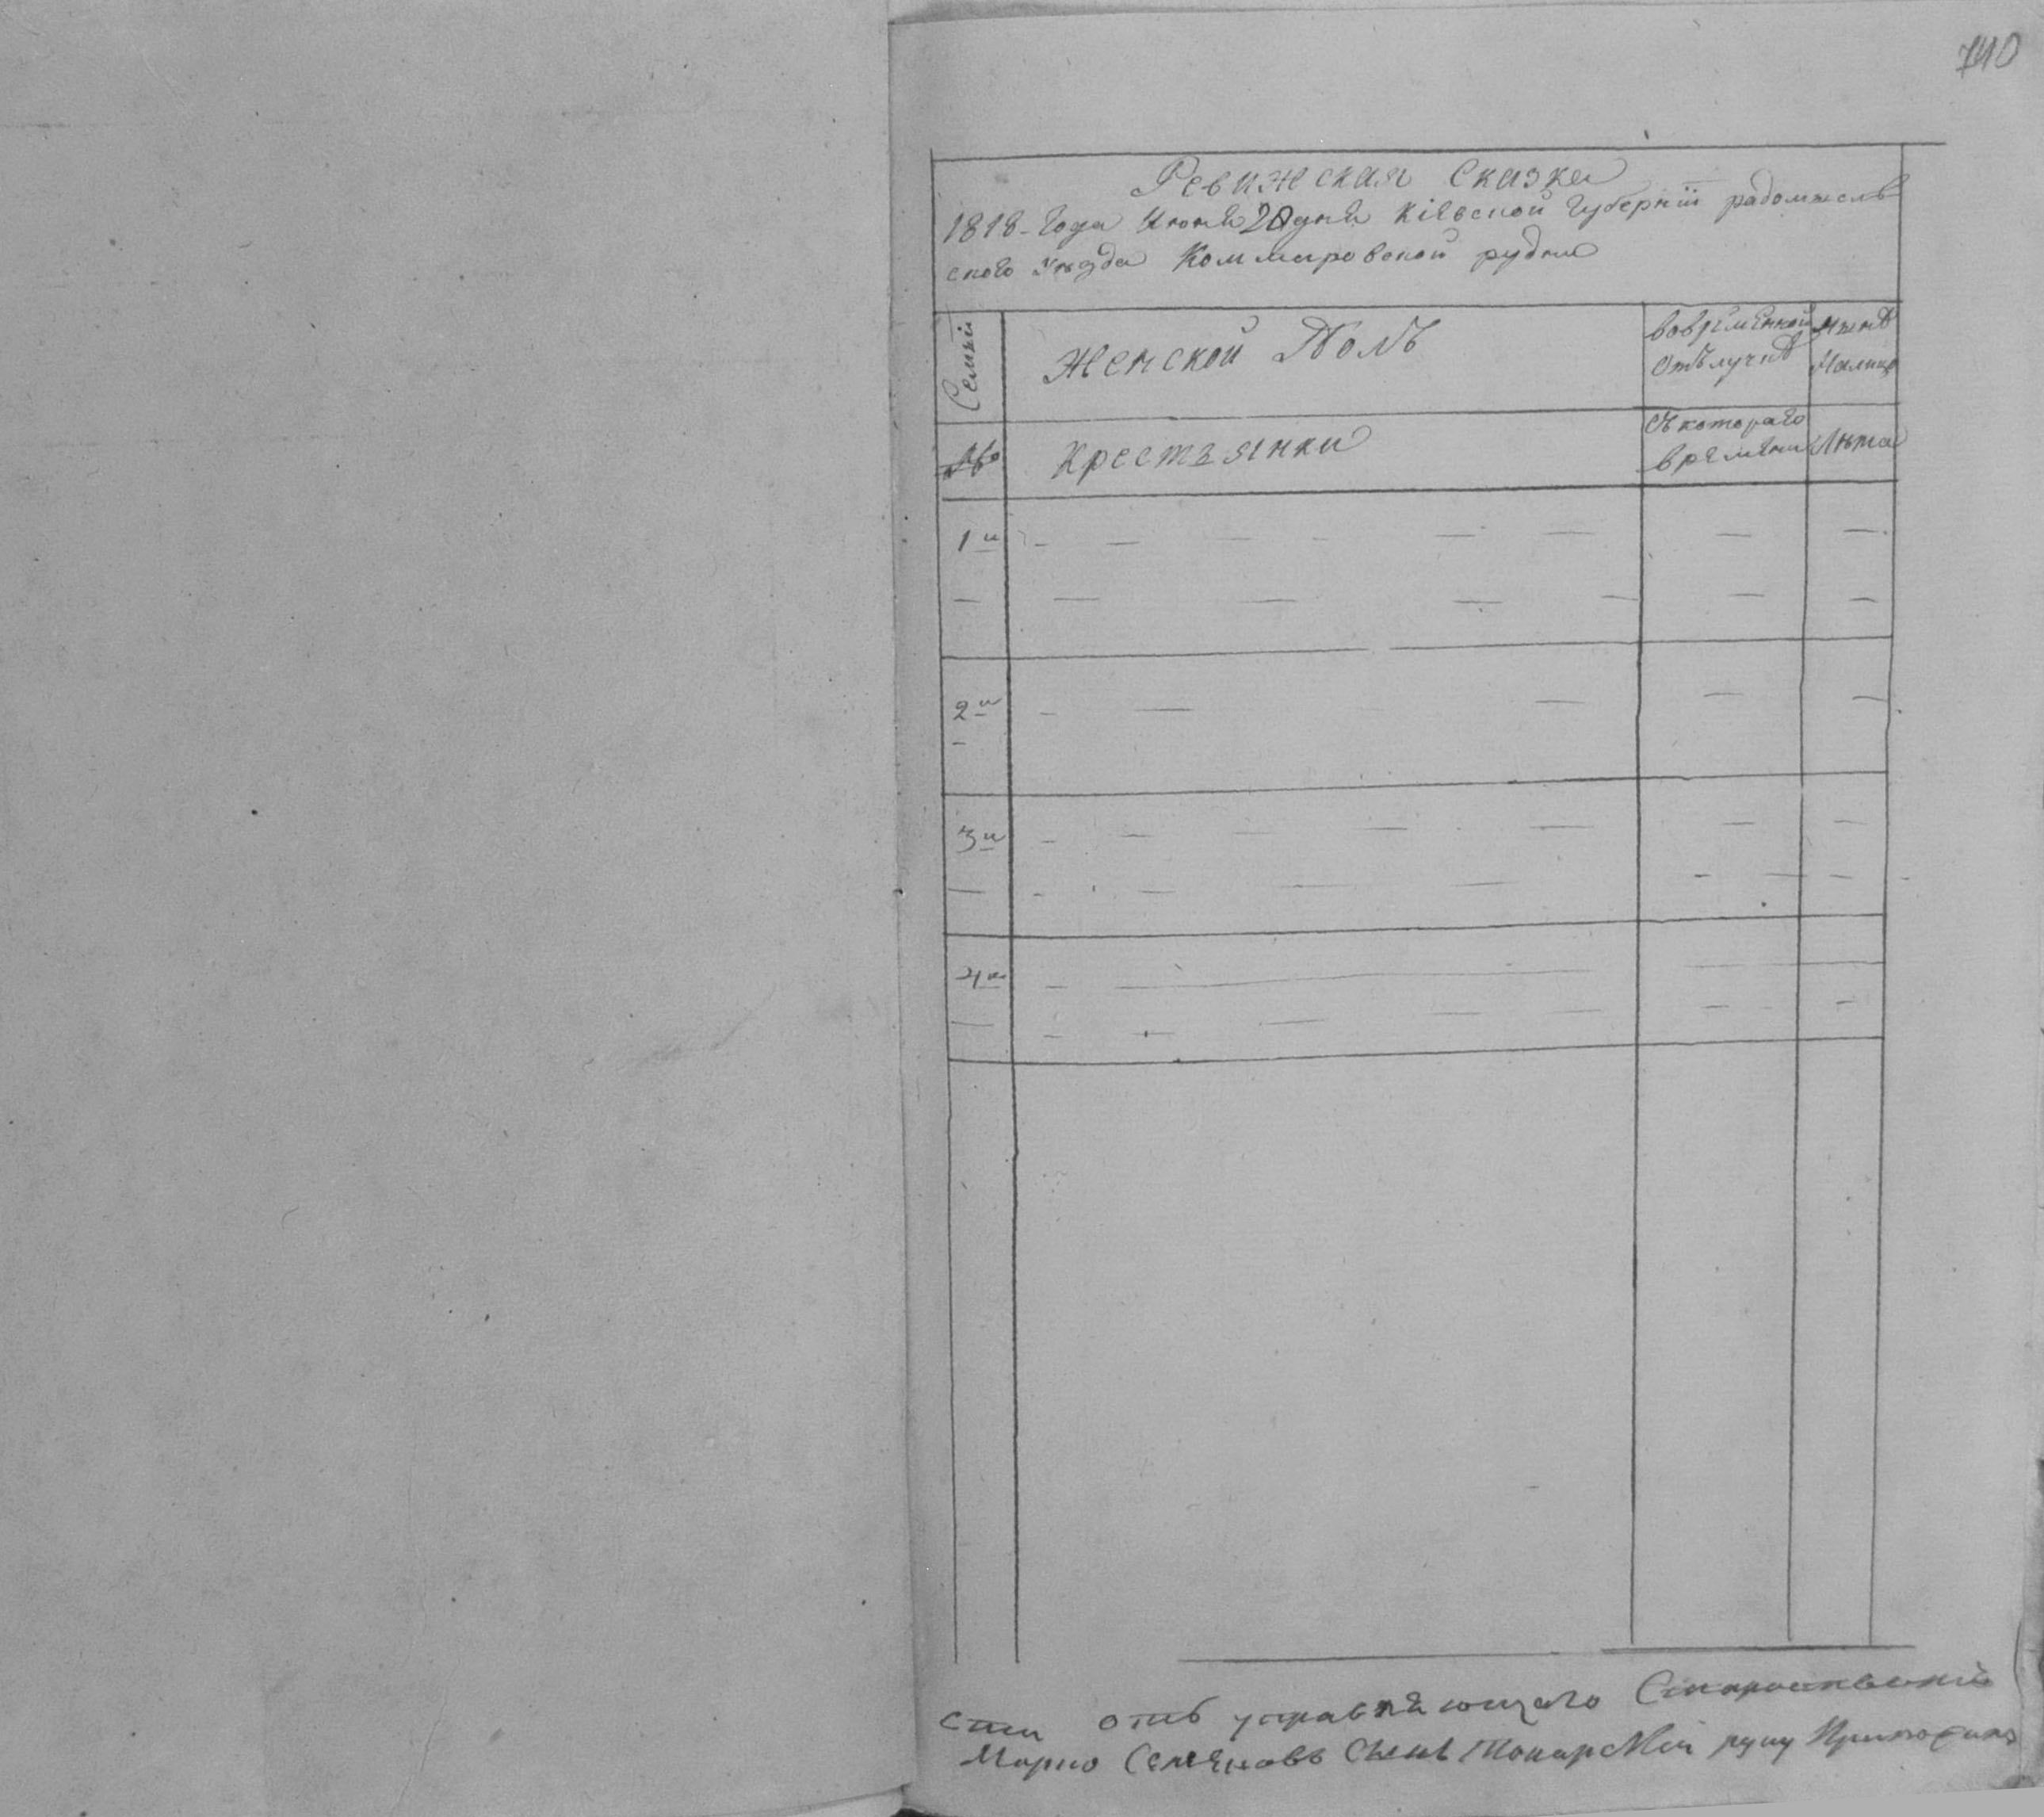 740
Ревижская Сказка
1818-года Июня 20 дня Кіевской Губерніи радомысль
ского Уезда Коммаровской рудни
Семьи
Женской Полъ
вовременной
отълучке
ныне
Налицо
№
Крестьянки
съ котораго
времени
Лета
1и – – – – – – – –
– – – – – – –
2и – – – – –
–
3и – – – – – – –
– – – – – – – –
4и – – – –
– – – – – – – –
отъ управляющаго
Марко Семеновъ сынъ руку Приложилъ